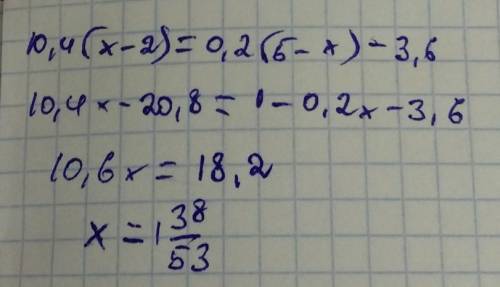 10,4(x-2)=0,2(5-x)-3,6
10,4x-20,8=1-0,2x-3,6
10,6x=18,2
x=1 38/53